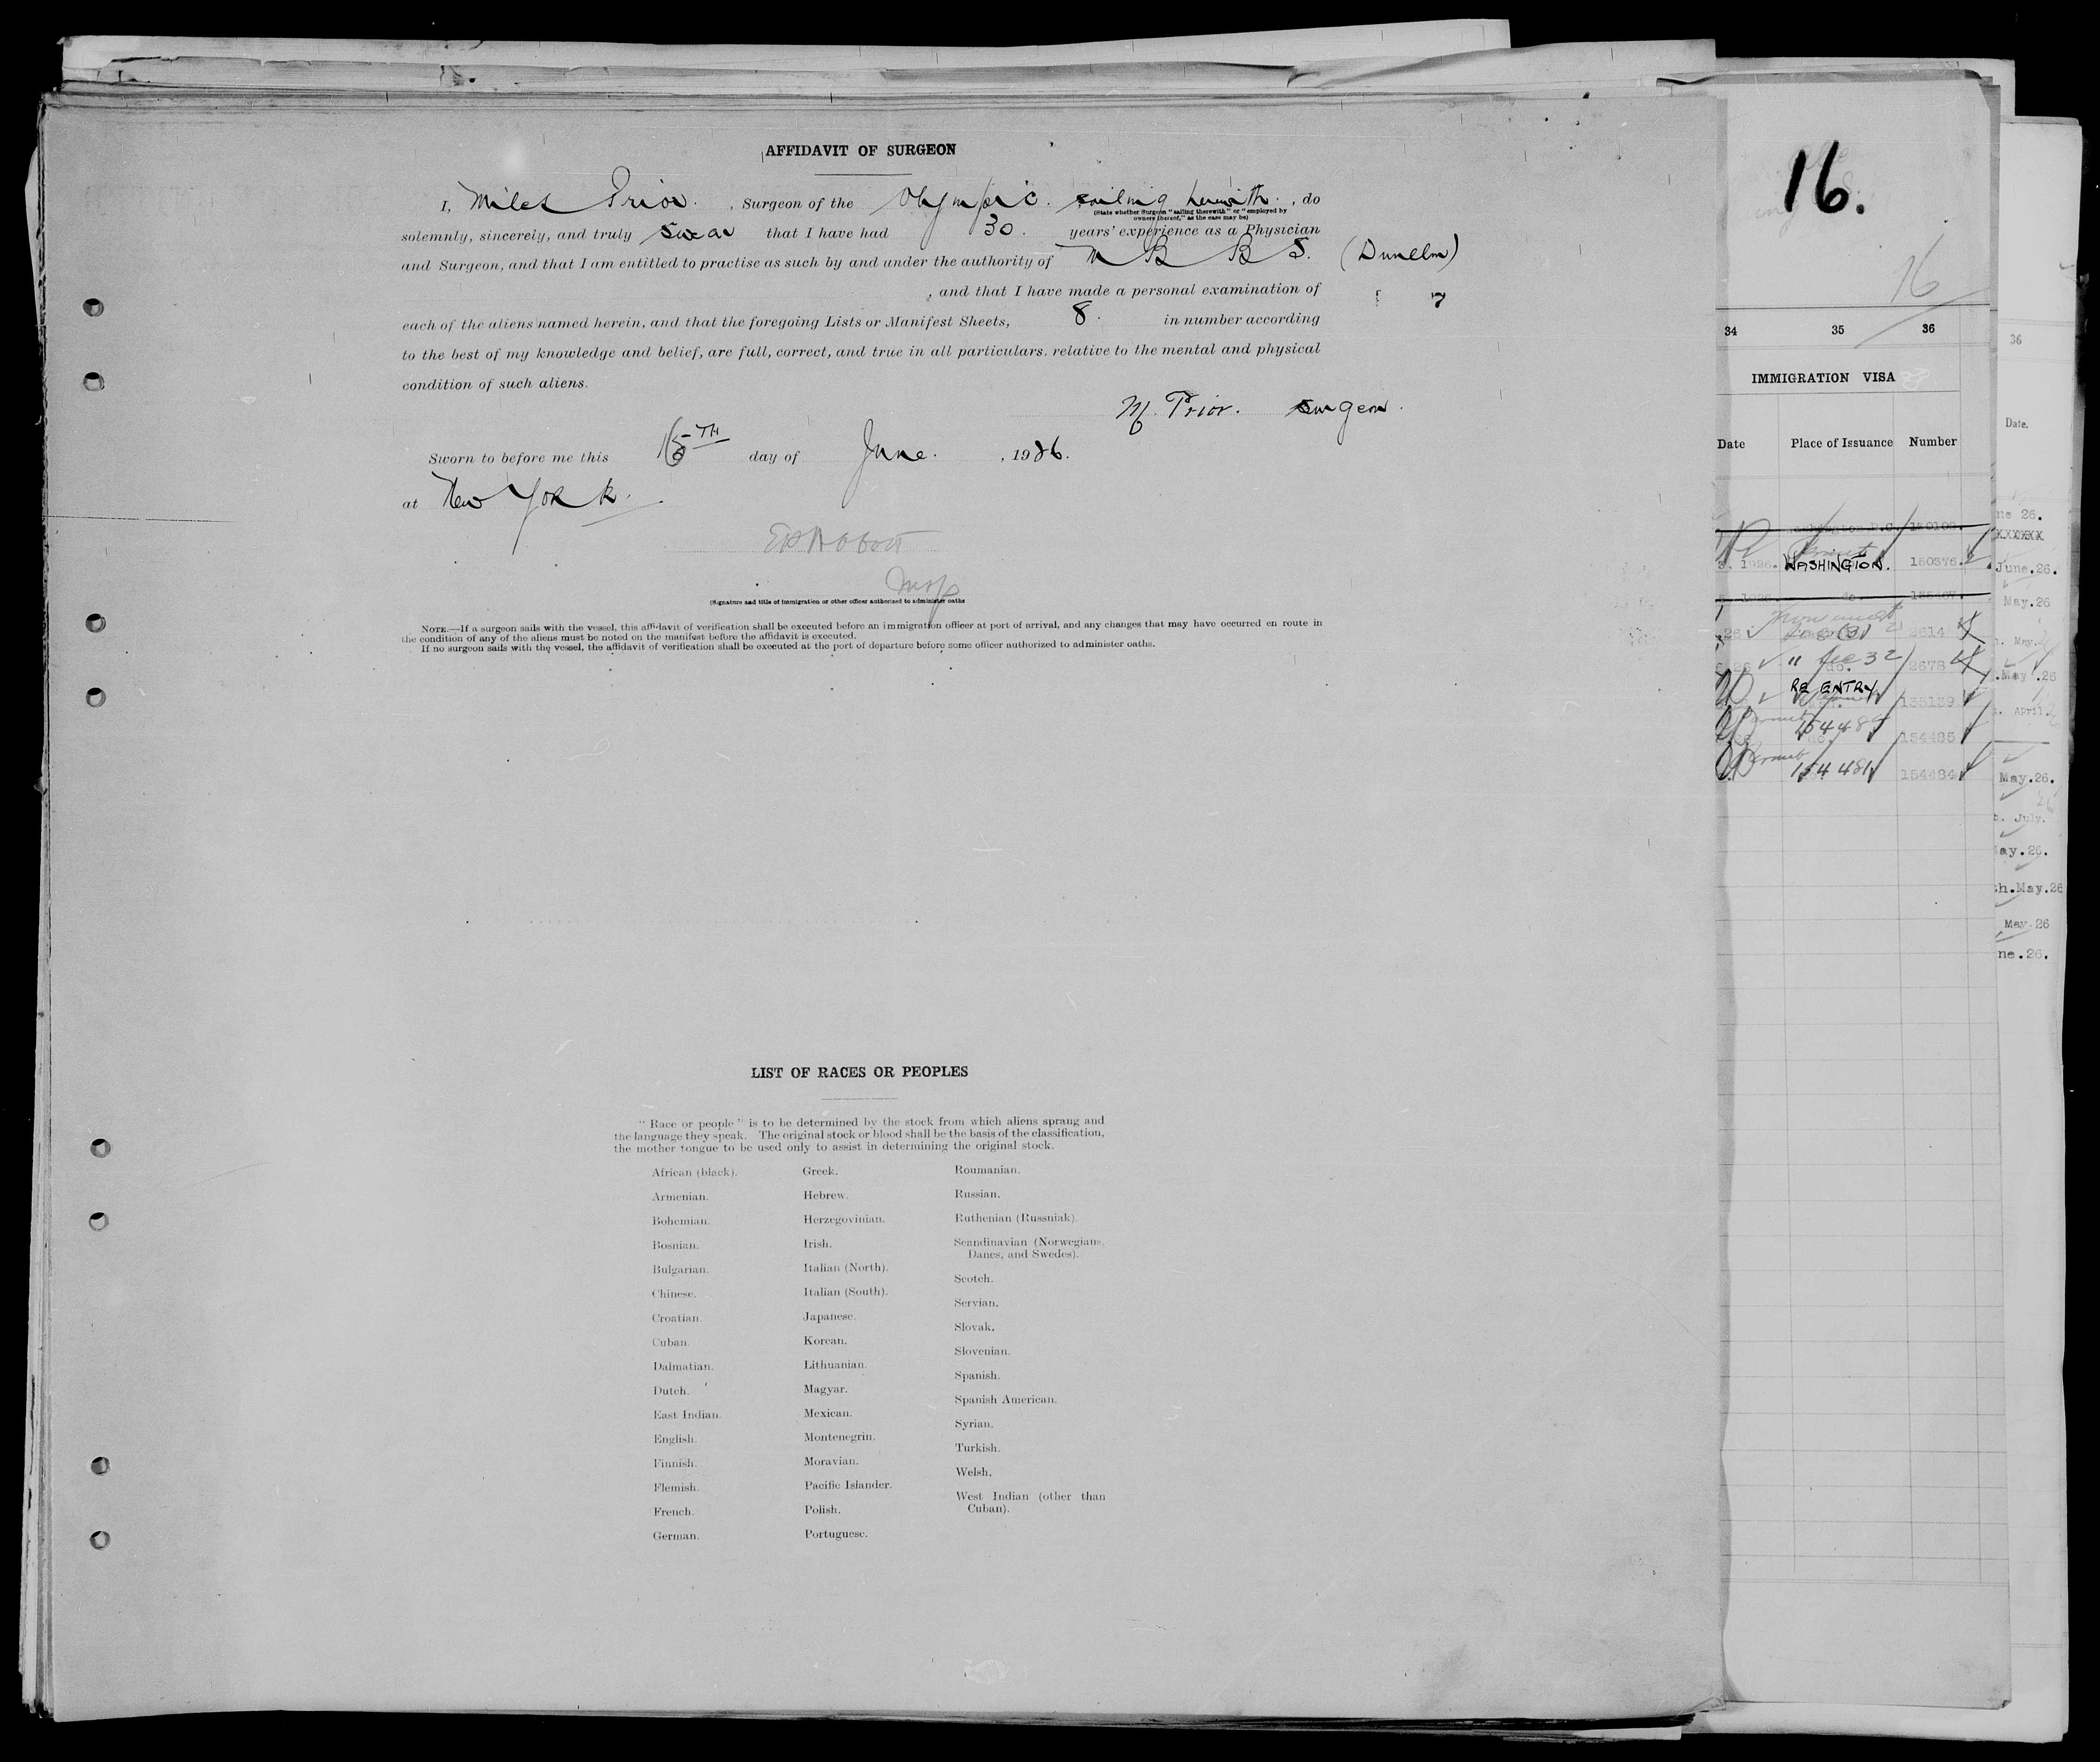 AFFIDAVIT OF SURGEON
I, Miles Prior. , Surgeon of the Olympic. sailing herewith. , do
(State whether Surgeon "sailing therewith" or "employed by
owners thereof," as the case may be)
solemnly, sincerely, and truly swear that I have had 30. years' experience as a Physician
and Surgeon, and that I am entitled to practise as such by and under the authority of M B B S. (Dunelm)
, and that I have made a personal examination of
each of the aliens named herein, and that the foregoing Lists or Manifest Sheets, 8. in number according
to the best of my knowledge and belief, are full, correct, and true in all particulars, relative to the mental and physical
condition of such aliens.
M. Prior. Surgeon.
Sworn to before me this day of June. , 1926.
at New York.
(Signature and title of immigration or other officer authorized to administer oaths
NOTE.—If a surgeon sails with the vessel, this affidavit of verification shall be executed before an immigration officer at port of arrival, and any changes that may have occurred en route in
the condition of any of the aliens must be noted on the manifest before the affidavit is executed.
If no surgeon sails with the vessel, the affidavit of verification shall be executed at the port of departure before some officer authorized to administer oaths.
LIST OF RACES OR PEOPLES
"Race or people" is to be determined by the stock from which aliens sprang and
the language they speak. The original stock or blood shall be the basis of the classification,
the mother tongue to be used only to assist in determining the original stock.
African (black).
Armenian.
Bohemian.
Bosnian.
Bulgarian.
Chinese.
Croatian.
Cuban.
Dalmatian.
Dutch.
East Indian.
English.
Finnish.
Flemish.
French.
German.
Greek.
Hebrew.
Herzegovinian.
Irish.
Italian (North).
Italian (South).
Japanese.
Korean.
Lithuanian.
Magyar.
Mexican.
Montenegrin.
Moravian.
Pacific Islander.
Polish.
Portuguese.
Roumanian.
Russian.
Ruthenian (Russniak).
Scandinavian (Norwegians,
Danes, and Swedes).
Scotch.
Servian.
Slovak.
Slovenian.
Spanish.
Spanish American.
Syrian.
Turkish.
Welsh.
West Indian (other than
Cuban).
16.
16
34 35 36
IMMIGRATION VISA
Date Place of Issuance Number
1926. WASHINGTON. 150376.
2614
2678
RE ENTRY 135139
154485
154481 154484
36
Date.
26.
June.26.
May.26
May.
May.26
April.
May.26.
July.
May.26.
May.26
May.26
26.